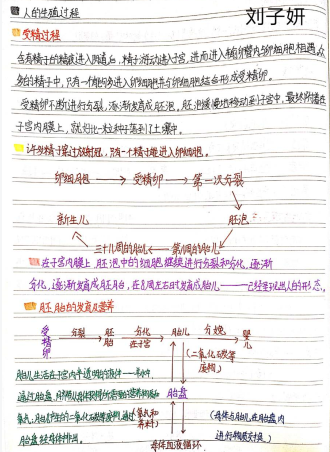 人的生殖过程
刘子妍
受精过程
含有精子的精液进入阴道后，精子游动进入子宫，进而进入输卵管内与卵细胞相遇，众
多的精子中，只有一个能够进入卵细胞并与卵细胞结合形成受精卵。
受精卵不断进行分裂，逐渐发育成胚泡，胚泡缓慢地移动到子宫中，最终植入在
子宫内膜上，就好比一粒种子落到了土壤中。
许多精子穿过放射冠，只有一个精子能进入卵细胞。
卵细胞 → 受精卵 → 第一次分裂
新生儿 胚泡
三十八周的胎儿 ← 第八周的胎儿
在子宫内膜上，胚泡中的细胞继续进行分裂和分化，逐渐
分化，逐渐发育成胚胎，在8周左右时发育成胎儿——已经呈现出人的形态。
胚胎的发育及营养
受精卵 分裂→ 胚胎 分化→在子宫 胎儿 分娩→ 婴儿
(二氧化碳等废物)
胎儿生活在子宫内半透明的液体——羊水中，
通过胎盘、
胎盘
(氧气和养料)
(母体与胎儿在胎盘内
进行物质交换)
胎盘经母体排出。
母体血液循环